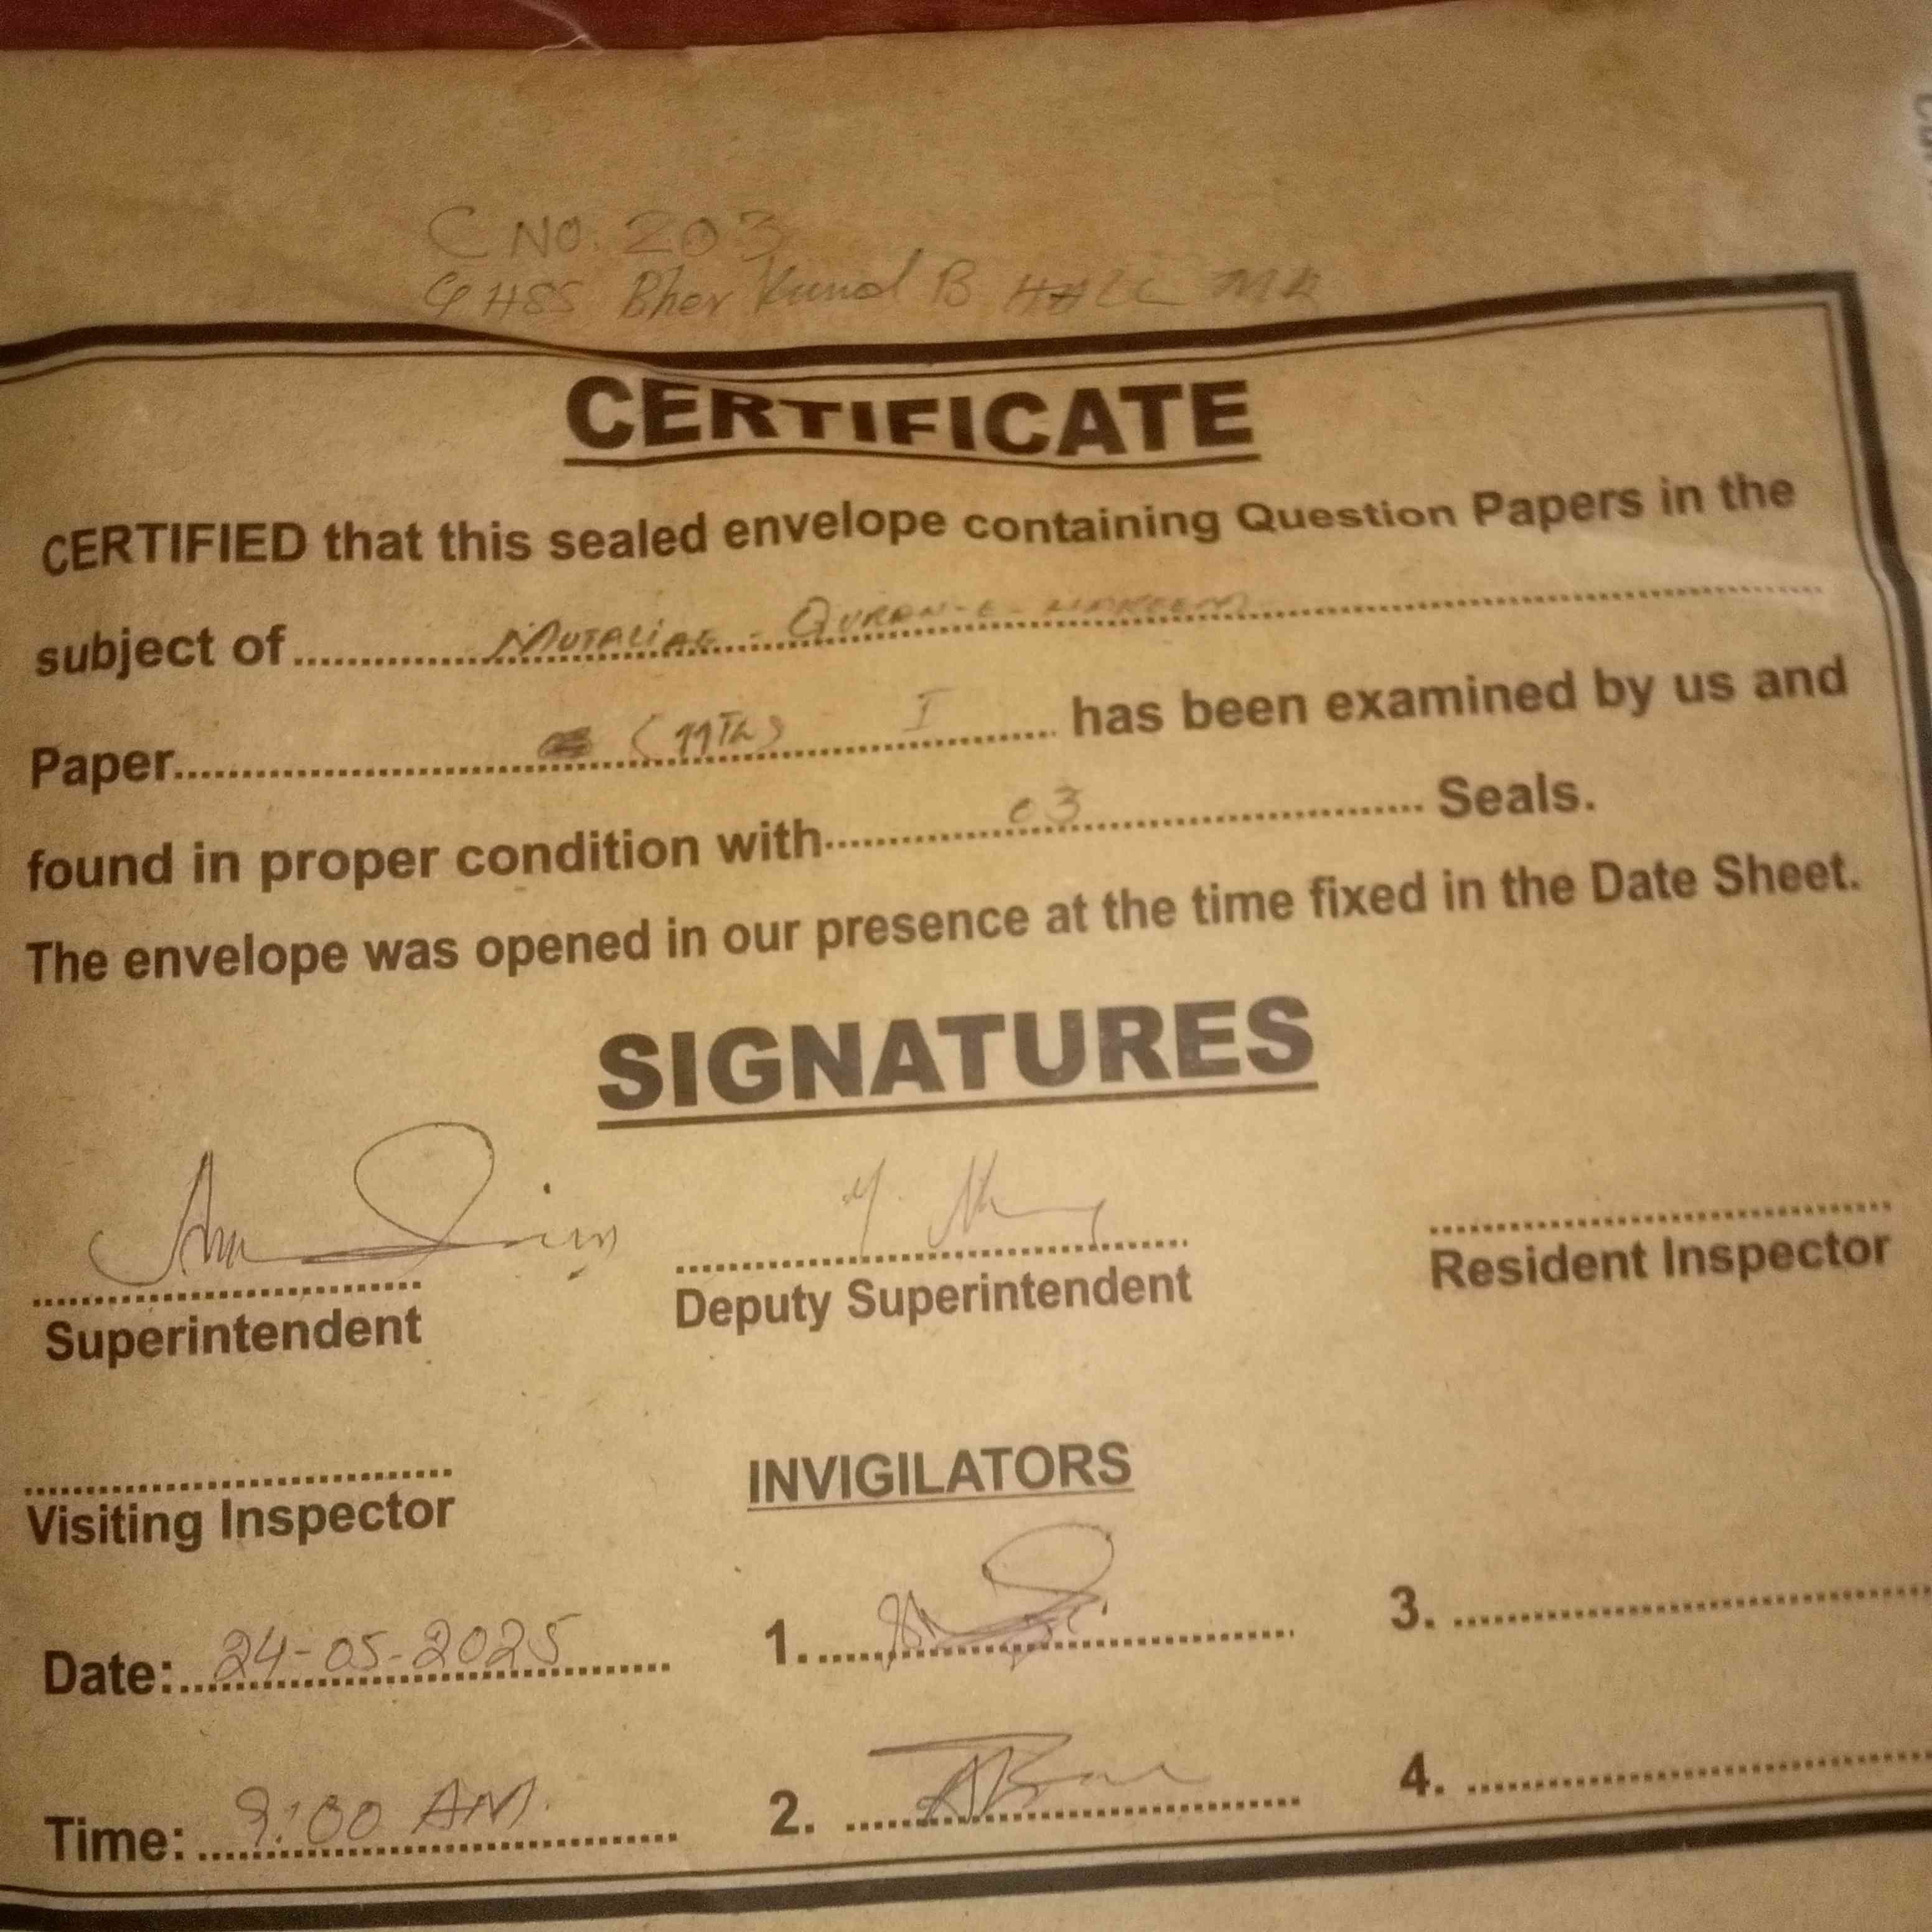 C NO. 203
GHSS Bher Kund B HALL MR
CERTIFICATE
CERTIFIED that this sealed envelope containing Question Papers in the
subject of MUTALIAE - QURAN-E-HAKEEM
Paper (11Th) I has been examined by us and
found in proper condition with 03 Seals.
The envelope was opened in our presence at the time fixed in the Date Sheet.
SIGNATURES
Superintendent Deputy Superintendent Resident Inspector
Visiting Inspector INVIGILATORS
Date: 24-05-2025 1. 3.
Time: 9:00 AM. 2. 4.